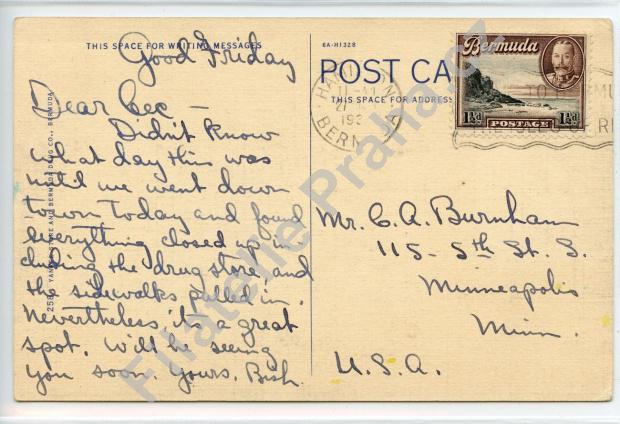 THIS SPACE FOR WRITING MESSAGES
Good Friday
Dear Cec —
Didn't know
what day this was
until we went down
town today and found
everything closed up in
cluding the drug store, and
the sidewalks pulled in.
Nevertheless it's a great
spot. Will be seeing
you soon. Yours, Bish.
6A-H1328
POST CA
THIS SPACE FOR ADDRESS
Bermuda
1½d POSTAGE 1½d
HAMILTON
BERM
Mr. C. A. Burnham
115 - 5th St. S.
Minneapolis
Minn.
U.S.A.
STORE AND BERMUDA DRUG CO., BERMUDA
Filatelie Praha.cz